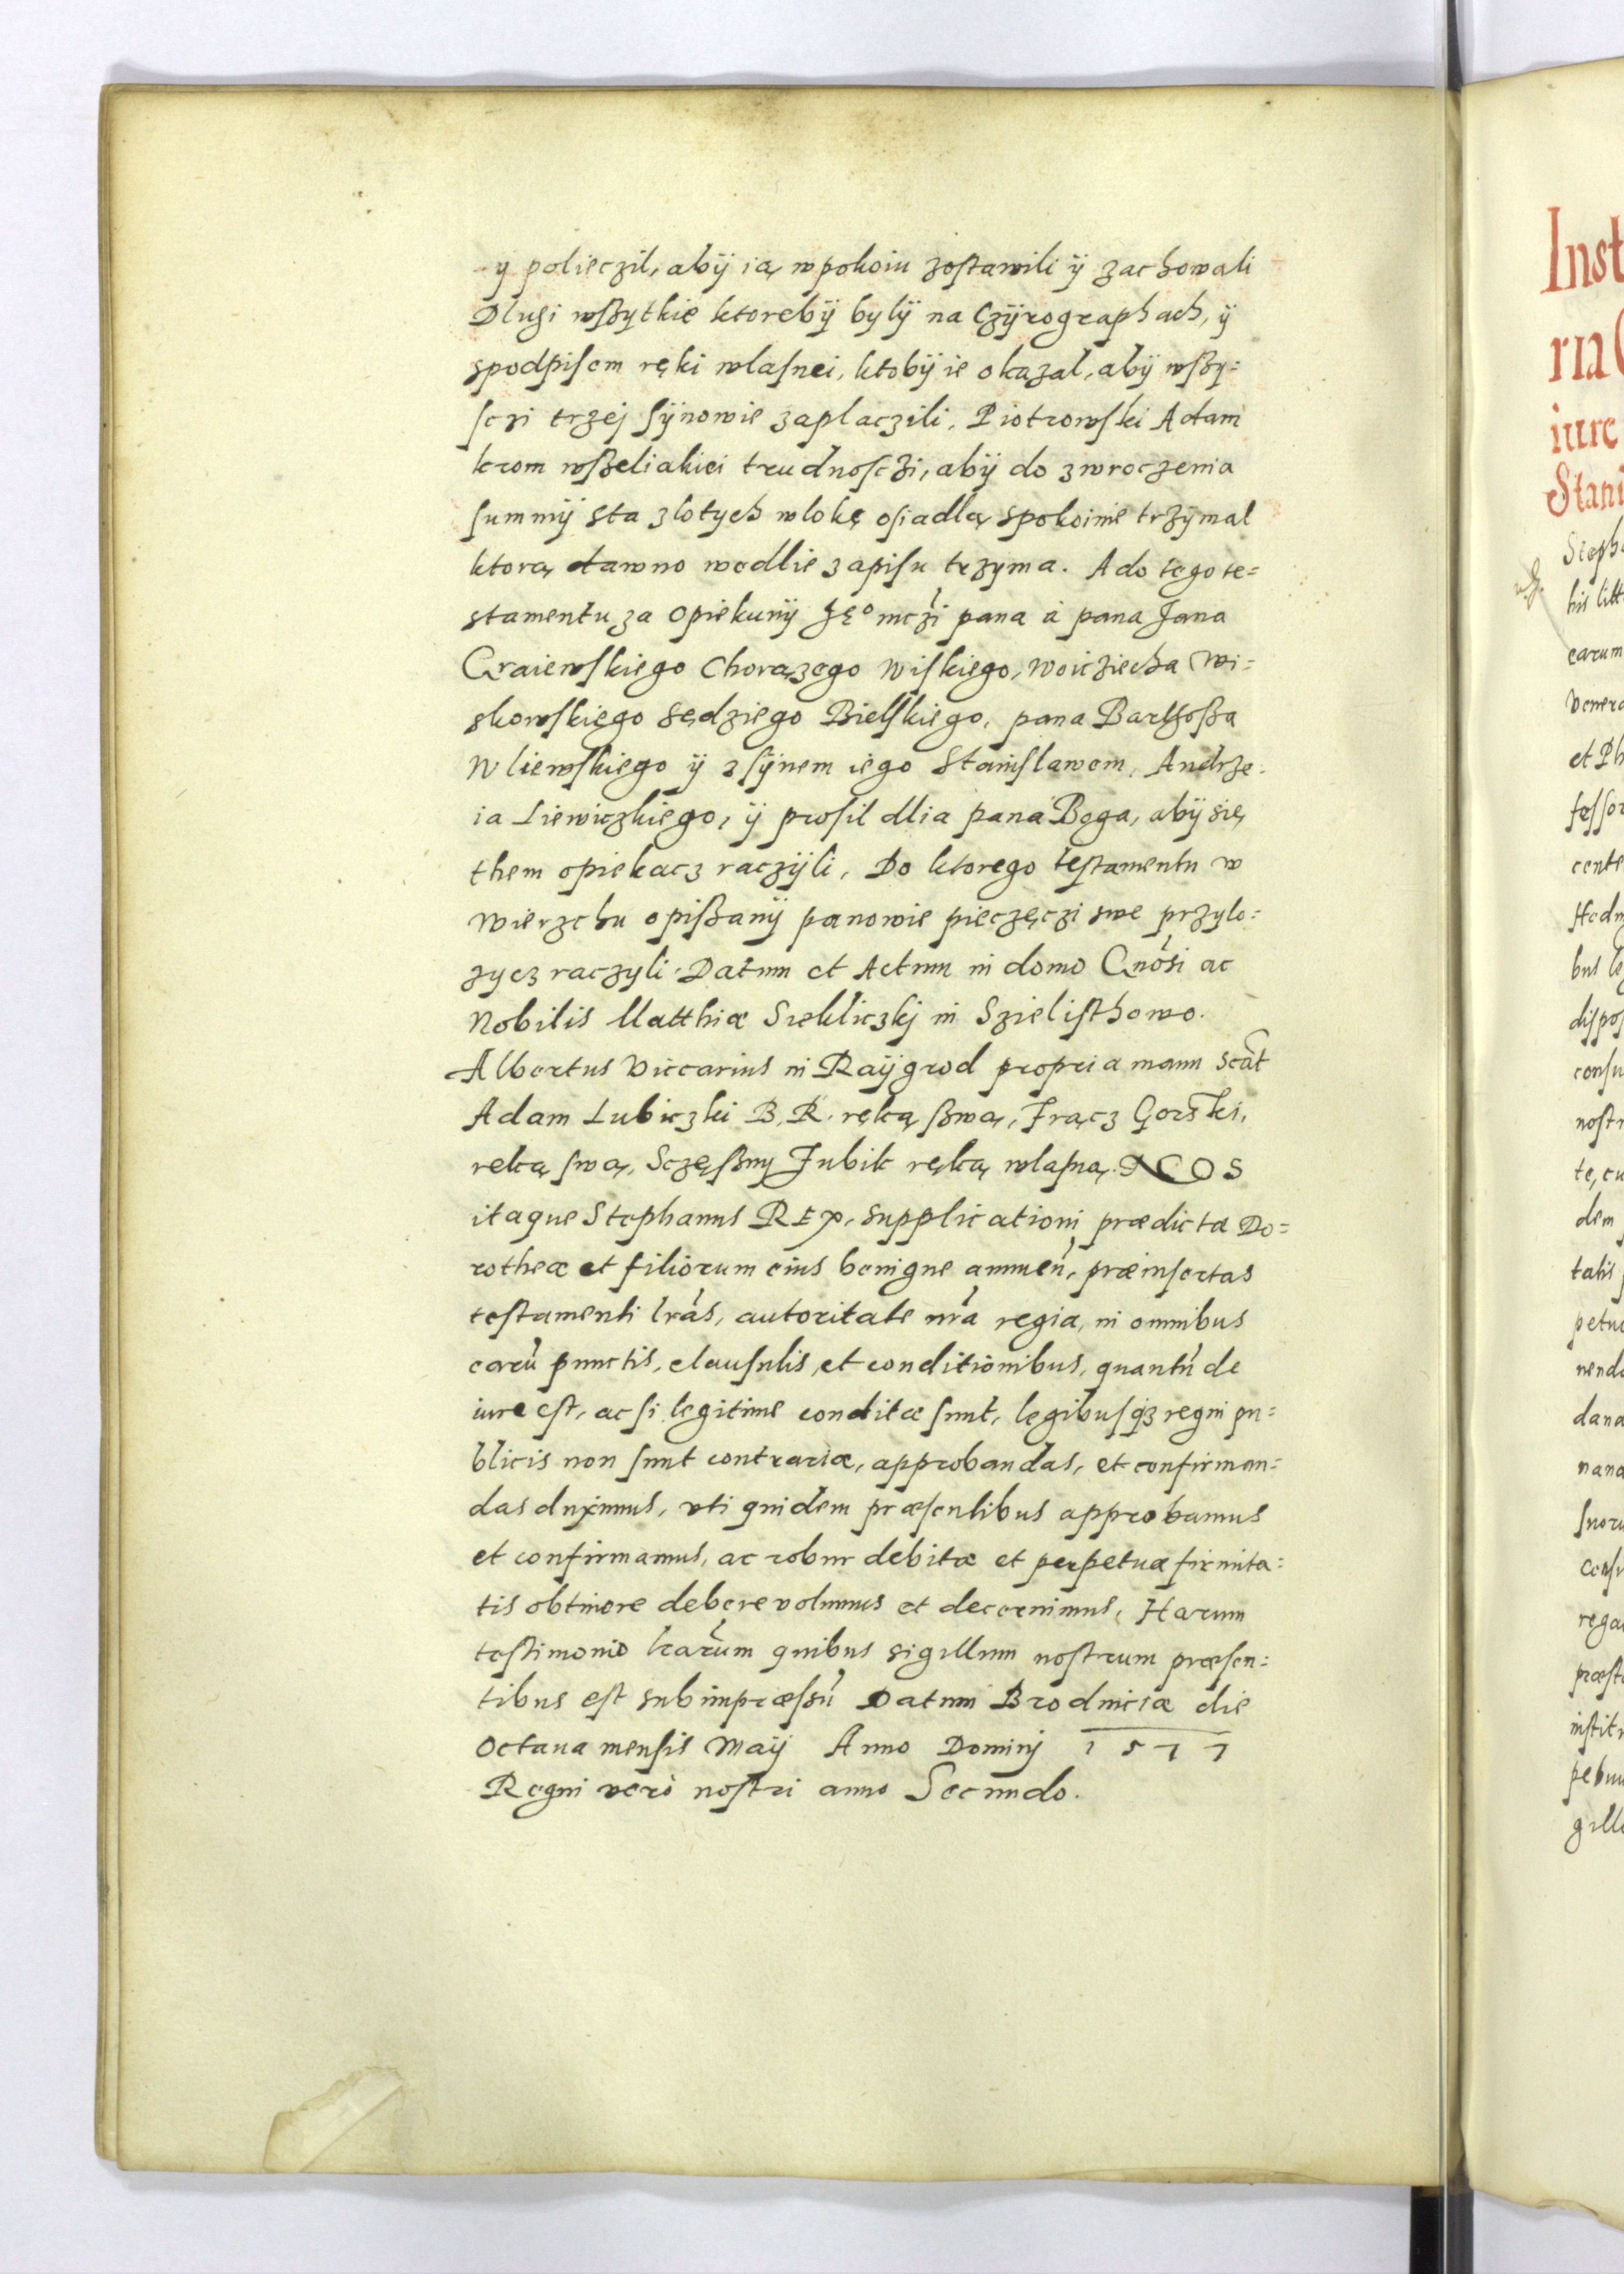 y polieczil, abÿ ią w pokoiu zostawili ÿ zachowali
Dlugi wszytkie ktorebÿ bylÿ na Czÿrographach, ÿ
spodpisem ręki wlasnei, ktobÿ ie okazal, abÿ wszy=
sczi trzej sÿnowie zaplaczili, Piotrowski Adam
krom wszeliakiei trudnosczi, abÿ do zwroczenia
summÿ sta zlotych wlokę osiadlą spokoinie trzÿmal
ktorą dawno wedlie zapisu trzyma. A do tego te=
stamentu za opiekunÿ Jeº mczi pana á pana Jana
Craiewskiego Chorązego Wiskiego, Woicziecha Wi=
skowskiego Sędziego Bielskiego, pana Barthosza
Wliewskiego ÿ z sÿnem iego Stanislawem, Andrze=
ia Liewiczkiego, ÿ prosil dlia pana Boga, abÿ się
them opiekacz raczÿli, Do ktorego testamentu w
wierzchu opiszanÿ panowie pieczęczi swe przylo=
zycz raczyli. Datum et Actum in domo Gnosi ac
Nobilis Matthiæ Siekliczkj in Szielisthowo.
Albertus Viccarius in Raÿgrod propria manu scat
Adam Lubiczki B. R. ręką szwą, Frącz Gorski,
reką swą, Sczęszny Jubik ręką wlasną. NOS
itaque Stephanus REX, supplicationi prædictæ Do=
rotheæ et filiorum eius benigne annuen, præinsertas
testamenti lras, autoritate nra regia, in omnibus
earu punctis, clausulis, et conditionibus, quantu de
iure est, ac si legitime conditæ sunt, legibusqz regni pu=
blicis non sunt contrariæ, approbandas, et confirman=
das duximus, vti quidem præsentibus approbamus
et confirmamus, ac robur debitæ et perpetuæ firmita=
tis obtinere debere volumus et decernimus, Harum
testimonio lrarum quibus sigillum nostrum præsen=
tibus est subimpræssu Datum Brodniciæ die
Octaua mensis Maÿ Anno Dominj 1577
Regni verò nostri anno Secundo.
Inst
ria
iure
Stani
Steph
his litt
earum
Venera
et Ph
fessor
cente
bus le
dispos
consu
nostr
te, cu
dem
tatis
petuo
nendo
dana
nana
suoru
rega
præst
institu
pebnu
gillo